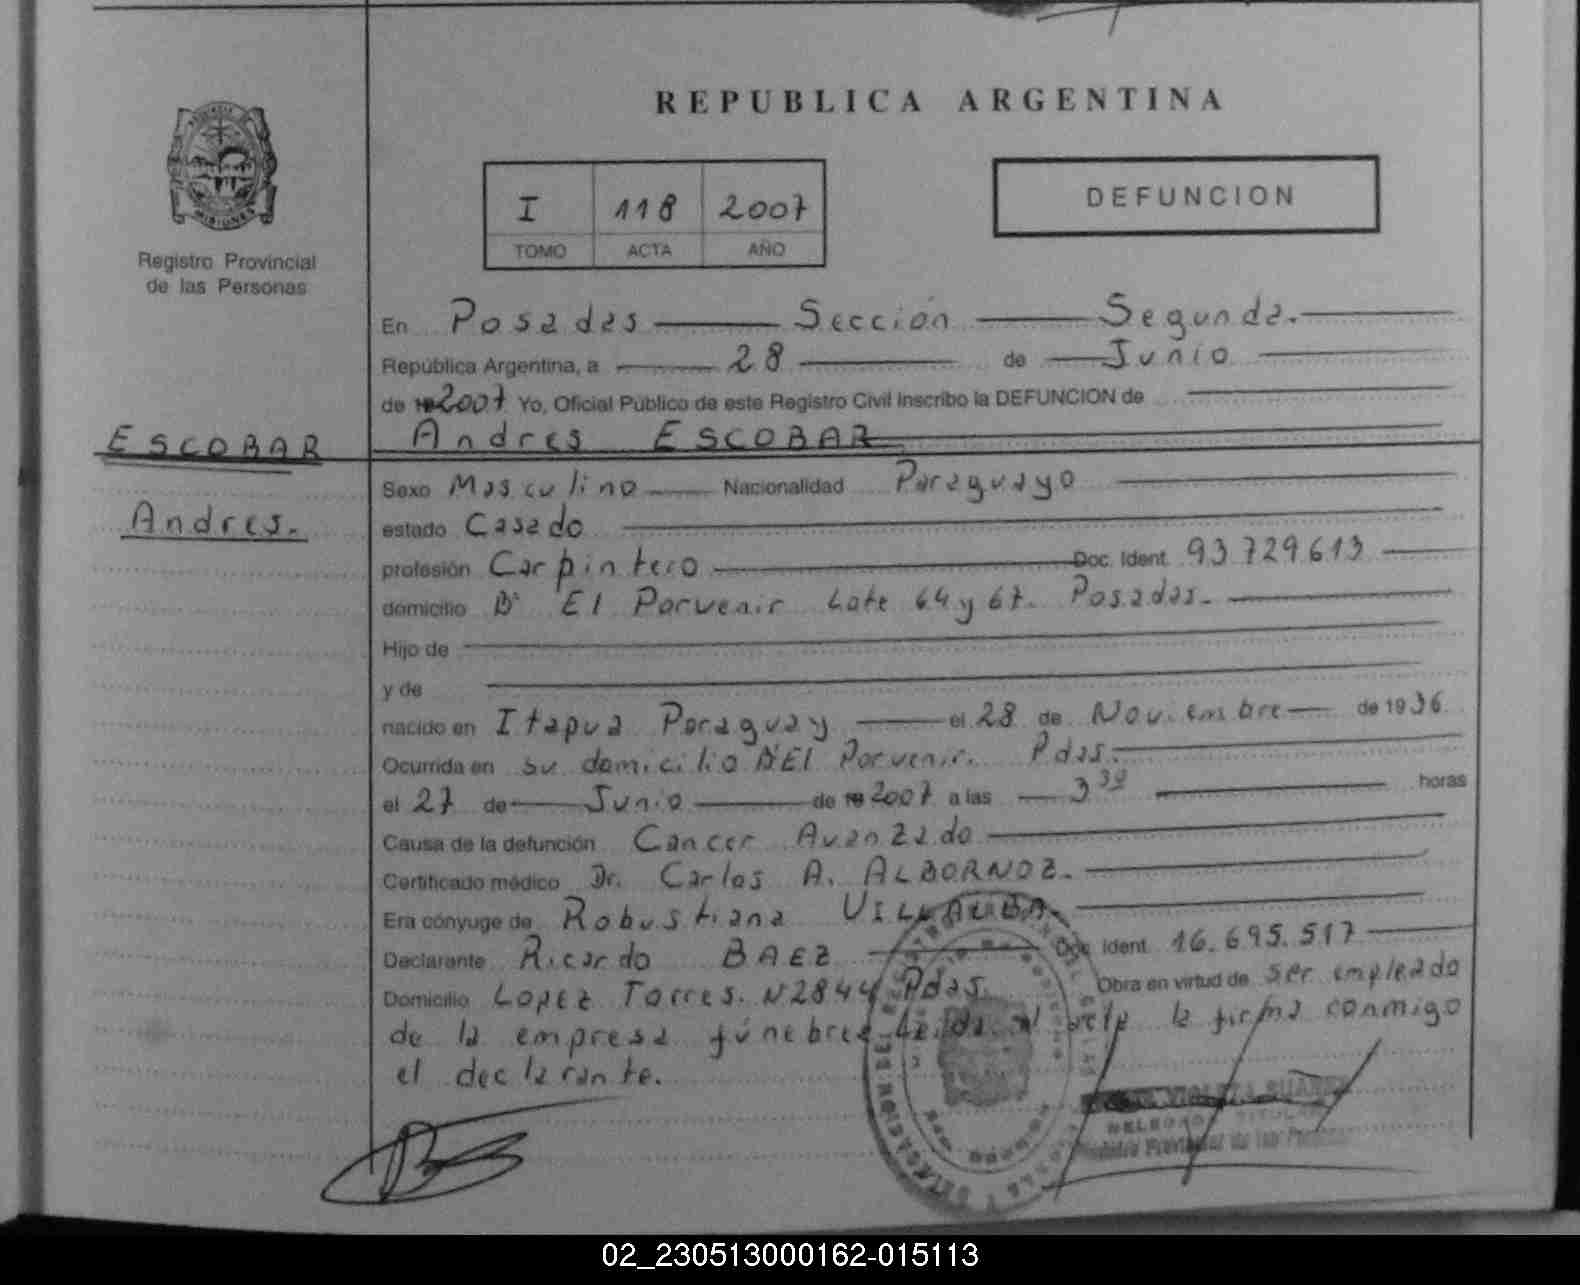 REPUBLICA ARGENTINA
PROVINCIA
MISIONES
Registro Provincial
de las Personas
I 118 2007
TOMO ACTA AÑO
DEFUNCION
En Posadas Sección Segunda.
República Argentina, a 28 de Junio
de 2007 Yo, Oficial Público de este Registro Civil inscribo la DEFUNCION de
ESCOBAR
Andres ESCOBAR
Andres.
Sexo Masculino Nacionalidad Paraguayo
estado Casado
profesión Carpintero Doc. Ident. 93.729.613
domicilio B° El Porvenir Lote 64 y 67. Posadas.
Hijo de
y de
nacido en Itapua Paraguay el 28 de Noviembre de 1936
Ocurrida en su domicilio B° El Porvenir. Pdas.
el 27 de Junio de 19 2007 a las 3 30 horas
Causa de la defunción Cancer Avanzado
Certificado médico Dr. Carlos A. ALBORNOZ.
Era cónyuge de Robustiana VILLALBA.
Declarante Ricardo BAEZ Doc. Ident. 16.695.517
Domicilio LOPEZ Torres. N 2844 Pdas. Obra en virtud de ser empleado
de la empresa fúnebre Leida el acta la firma conmigo
el declarante.
VIOLETA SUAREZ
DELEGADO TITULAR
Registro Provincial de las Personas
02_230513000162-015113